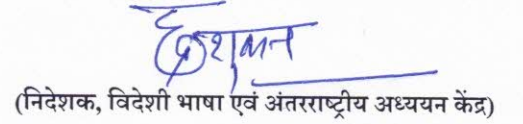 (निदेशक, विदेशी भाषा एवं अंतरराष्ट्रीय अध्ययन केंद्र)